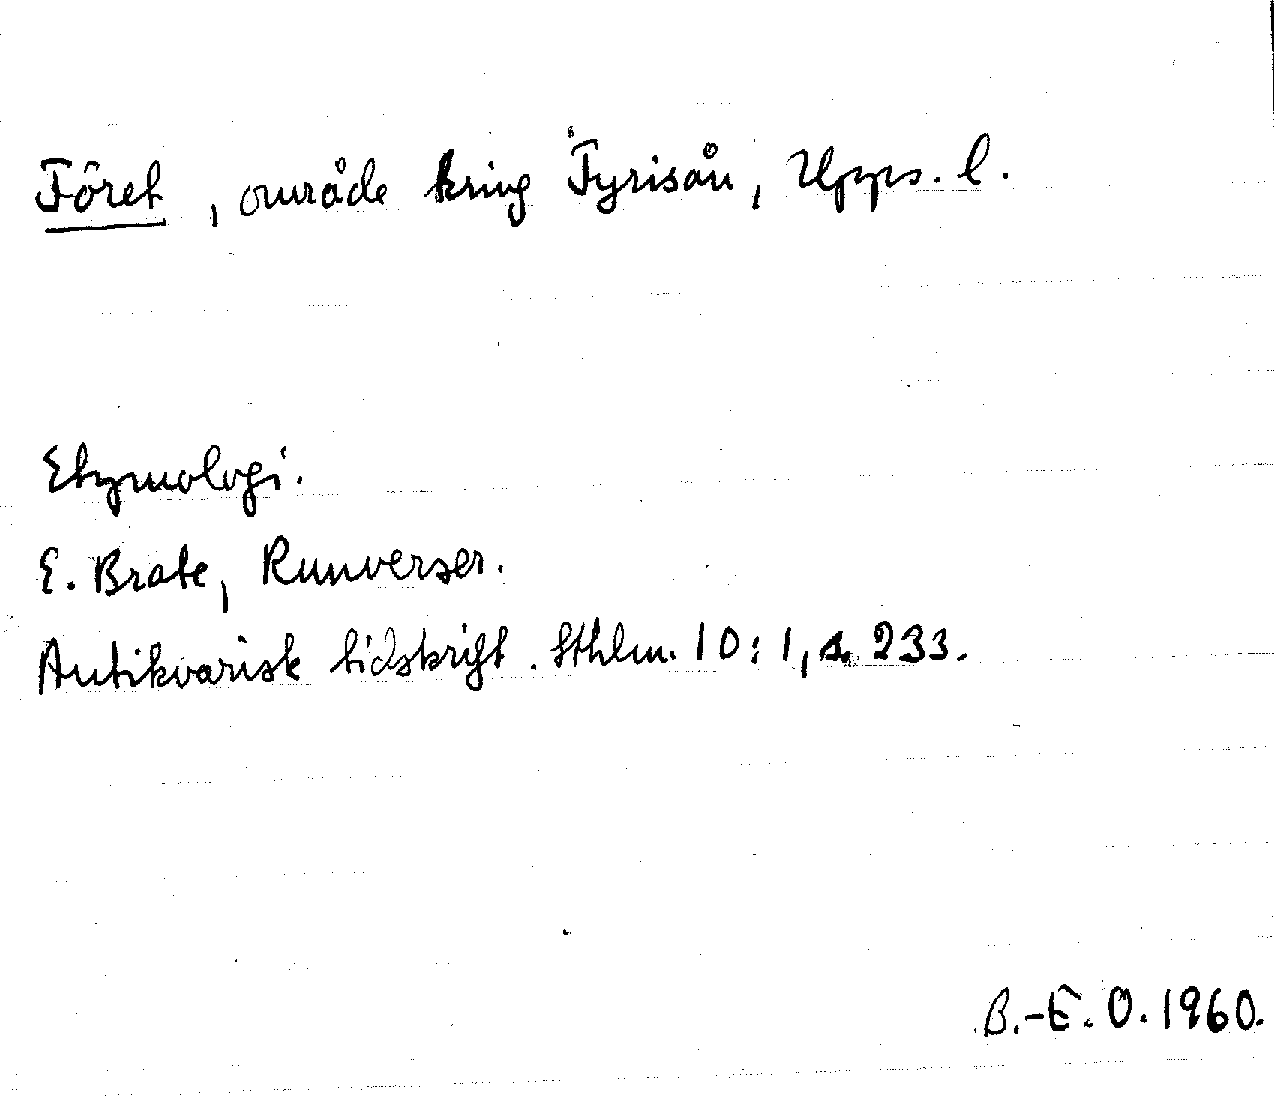 Föret, område kring Fyrisån, Upps. l.
Etymologi.
E. Brate, Runverser.
Antikvarisk tidskrift. Sthlm. 10:1, s. 233.
B.-E. O. 1960.